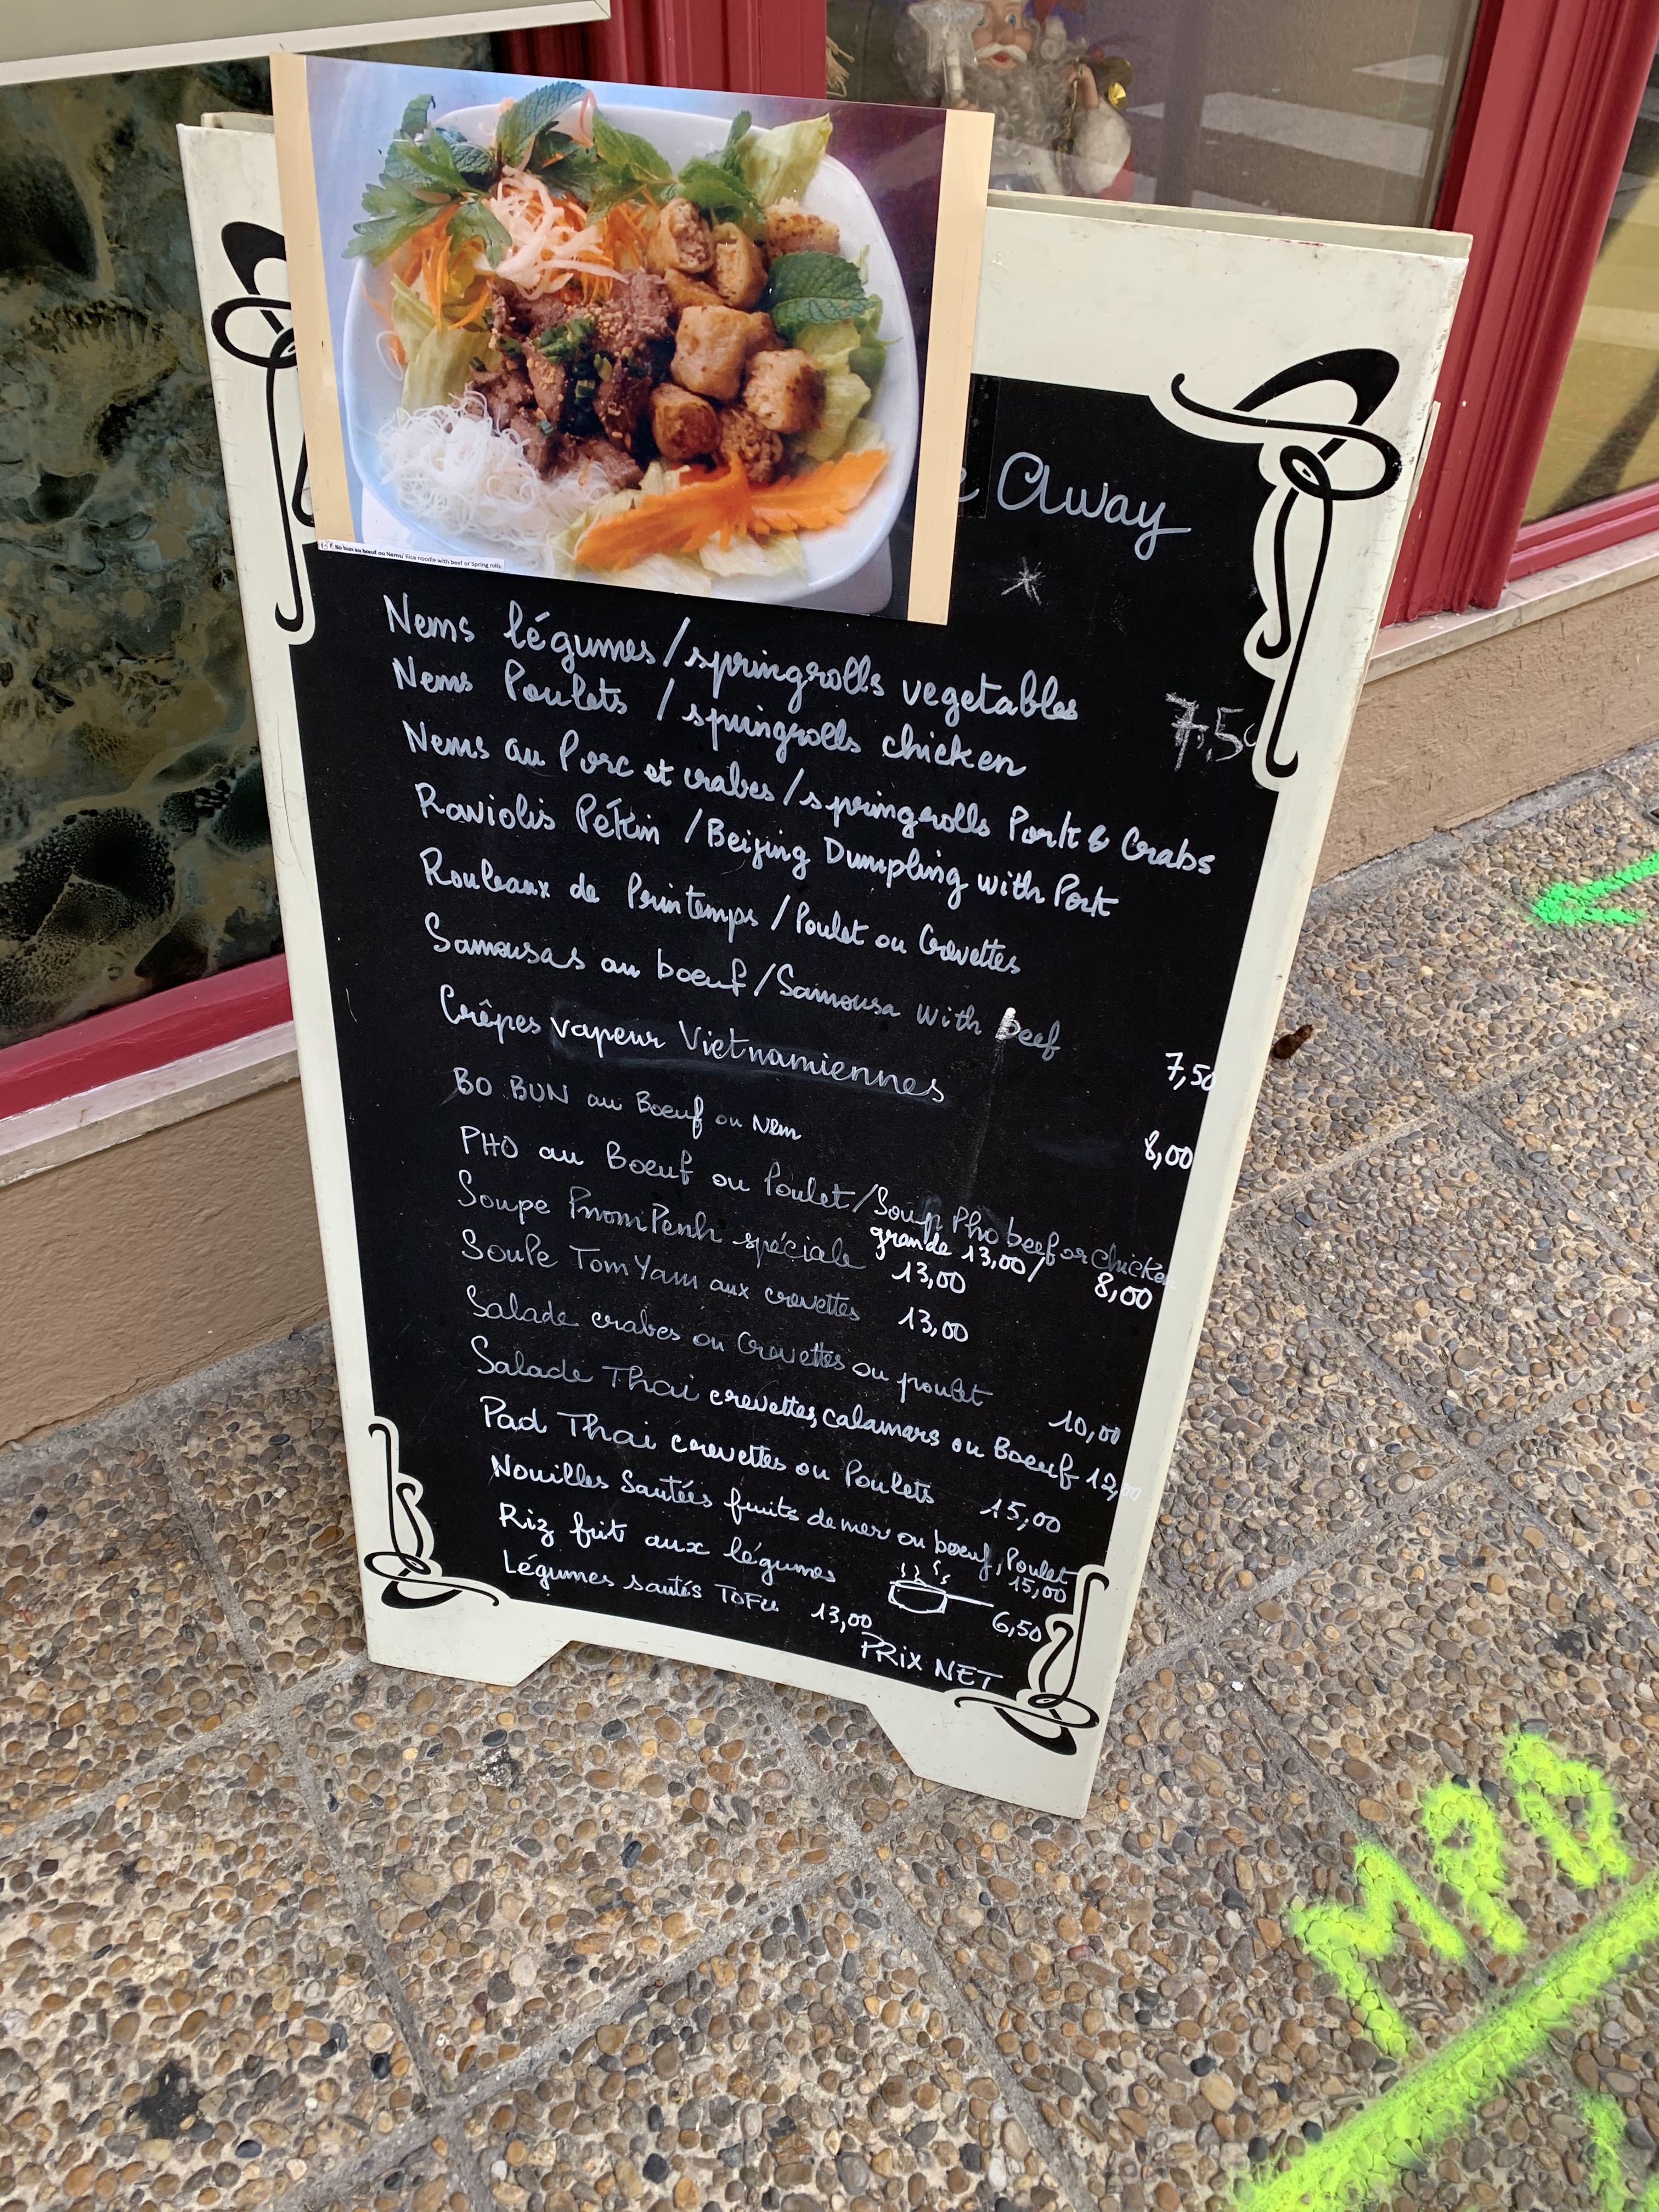 Away
Bo bun au bœuf ou Nems/ Rice noodle with beef or Spring rolls
Nems légumes/springrolls vegetables
Nems Poulets / springrolls chicken 7,50
Nems au Porc et crabes/springrolls Pork & Crabs
Raviolis Pékin /Beijing Dumpling with Pork
Rouleaux de Printemps /Poulet ou Crevettes
Samousas au boeuf/Samousa with beef
Crêpes vapeur Vietnamiennes 7,50
BO BUN au Boeuf ou Nem 8,00
PHO au Boeuf ou Poulet/Soup Pho beef or chicken
grande 13,00/ 8,00
Soupe PnomPenh spéciale 13,00
Soupe Tom Yam aux crevettes 13,00
Salade crabes ou Crevettes ou poulet 10,00
Salade Thai crevettes, calamars ou Boeuf 12,00
Pad Thai crevettes ou Poulets 15,00
Nouilles Sautées fruits de mer ou boeuf, Poulet 15,00
Riz frit aux légumes 6,50
Légumes sautés TOFU 13,00
PRIX NET